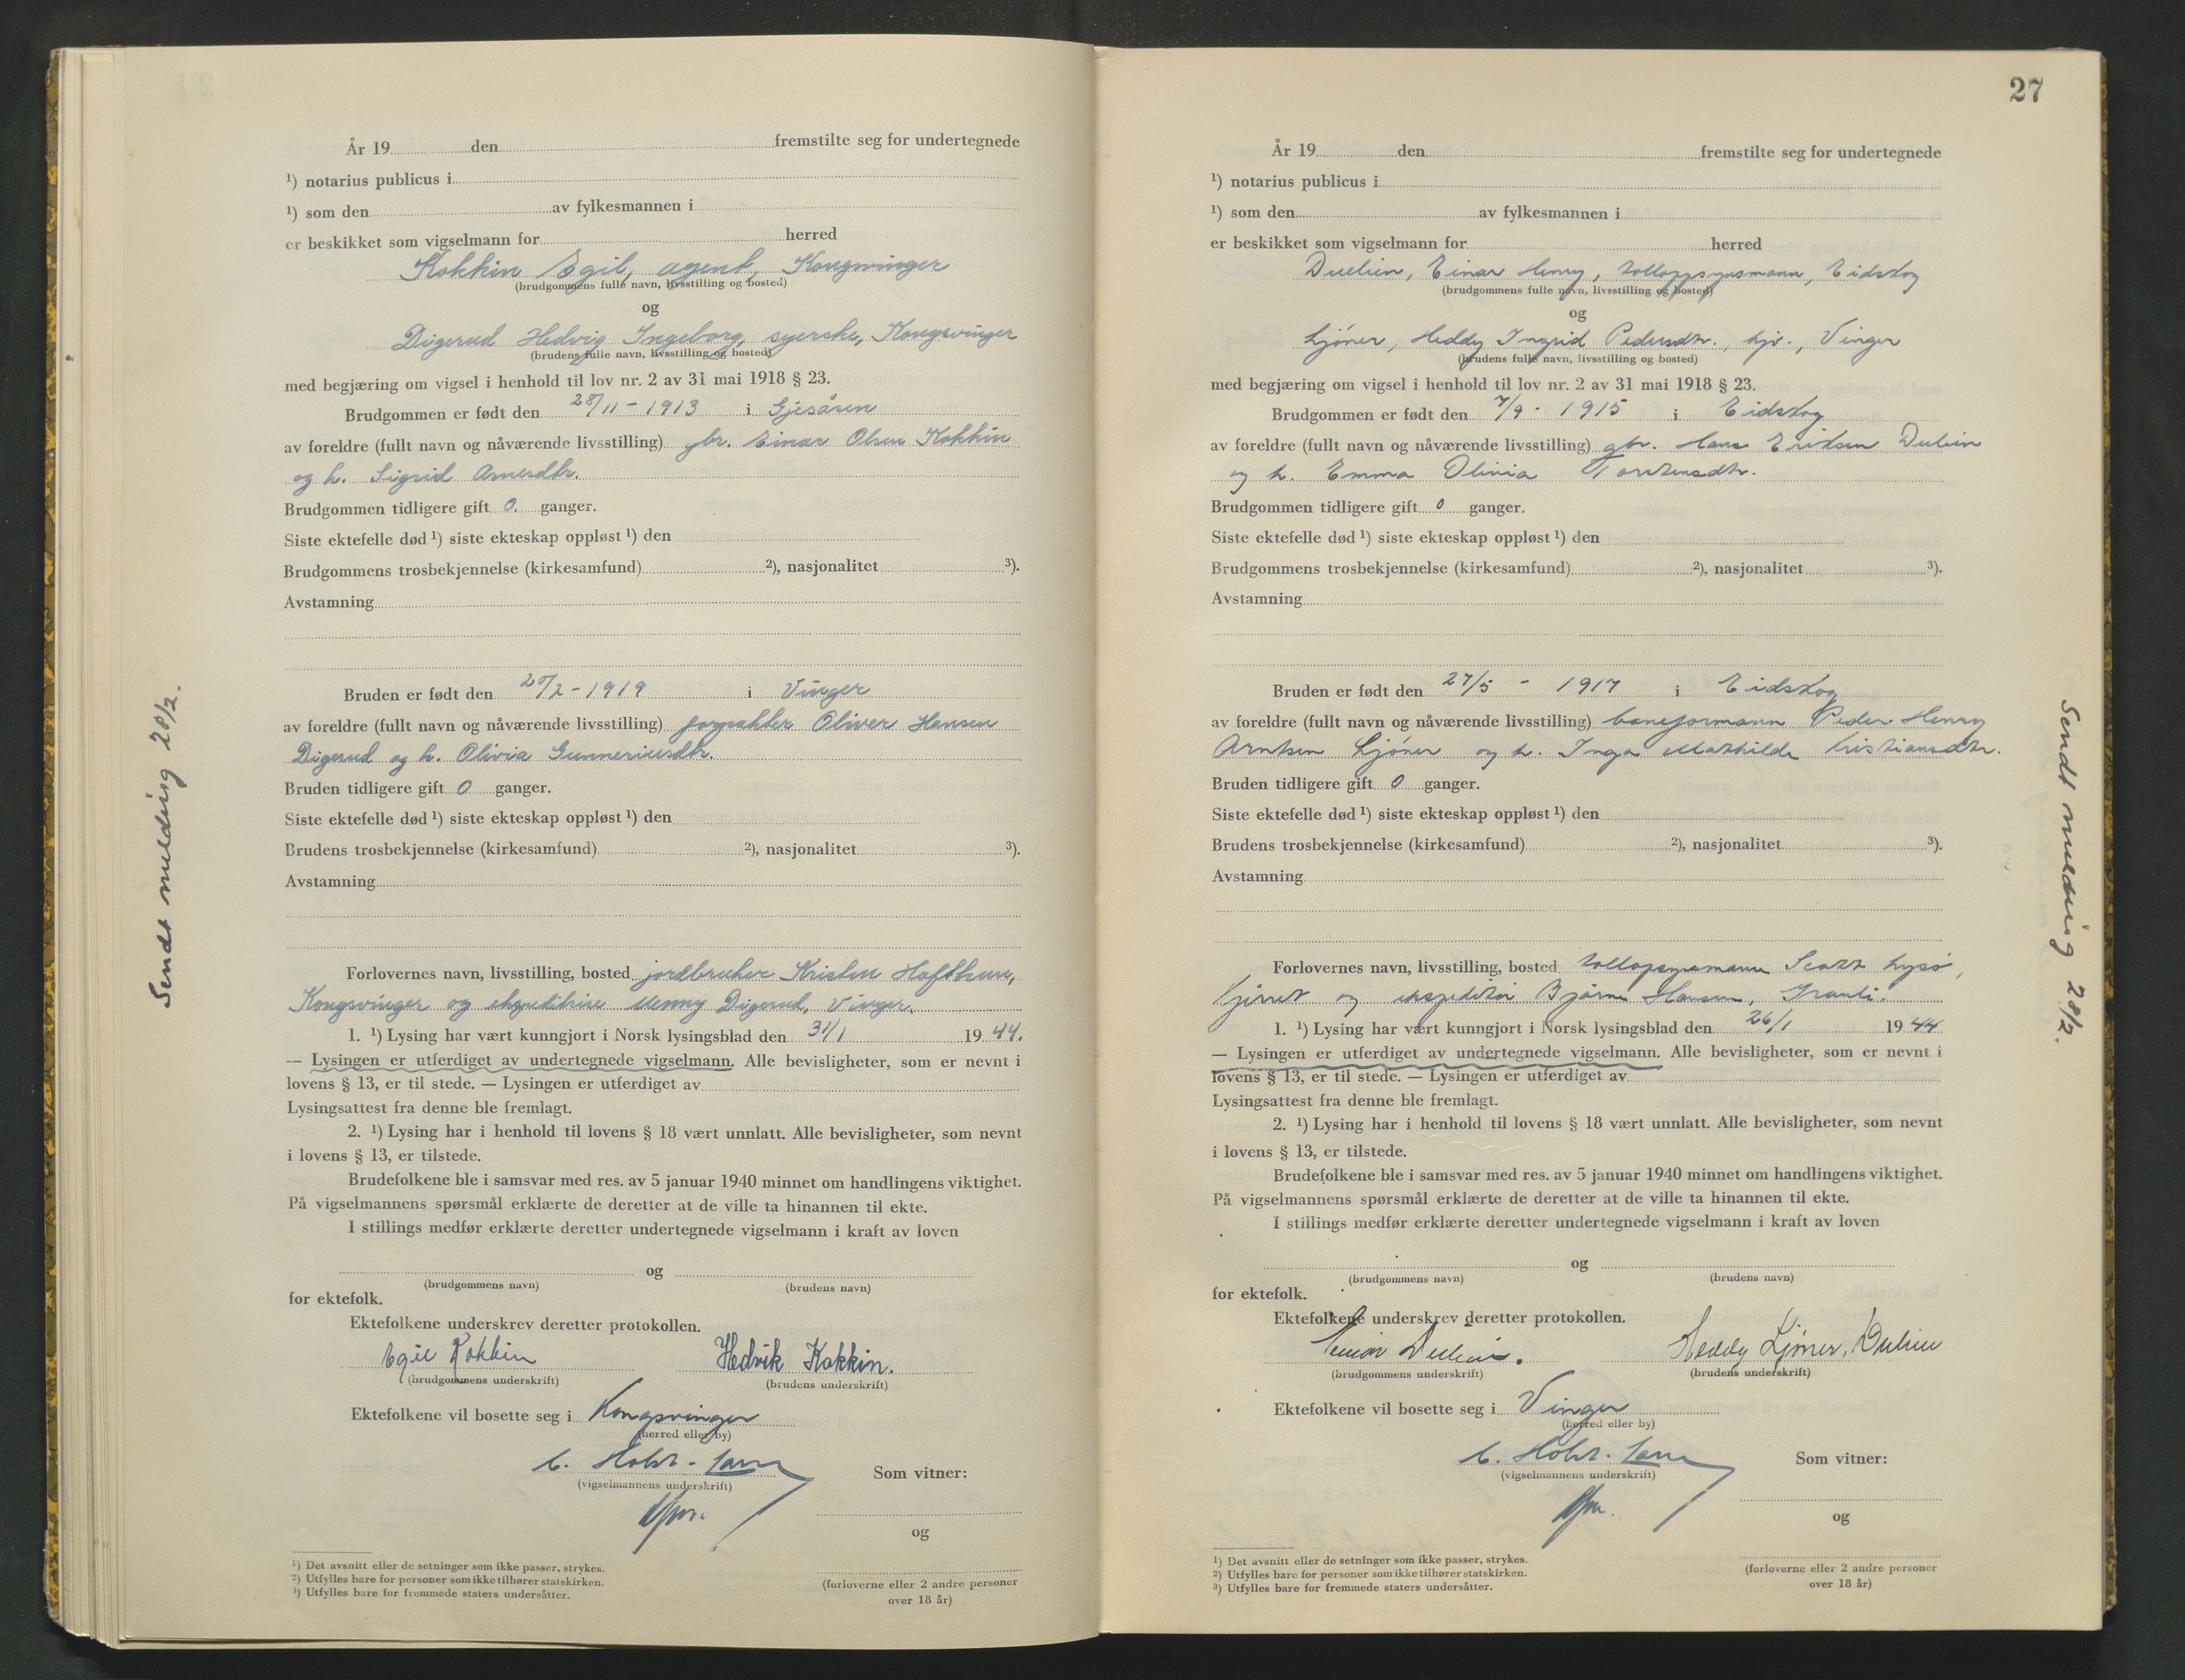 År 19 den fremstilte seg for undertegnede
¹) notarius publicus i
¹) som den av fylkesmannen i
er beskikket som vigselmann for herred
Kokkin Egil, agent, Kongsvinger
(brudgommens fulle navn, livsstilling og bosted)
og
Digerud Hedvig Ingeborg, syerske, Kongsvinger
(brudens fulle navn, livsstilling og bosted)
med begjæring om vigsel i henhold til lov nr. 2 av 31 mai 1918 § 23.
Brudgommen er født den 28/11 - 1913 i Gjesåsen
av foreldre (fullt navn og nåværende livsstilling) gbr. Einar Olsen Kokkin
og h. Sigrid Arnesdtr.
Brudgommen tidligere gift 0. ganger.
Siste ektefelle død ¹) siste ekteskap oppløst ¹) den
Brudgommens trosbekjennelse (kirkesamfund) ²), nasjonalitet ³).
Avstamning
Bruden er født den 20/2 - 1919 i Vinger
av foreldre (fullt navn og nåværende livsstilling) forpakter Oliver Hansen
Digerud og h. Olivia Gunneriusdtr.
Bruden tidligere gift 0 ganger.
Siste ektefelle død ¹) siste ekteskap oppløst ¹) den
Brudens trosbekjennelse (kirkesamfund) ²), nasjonalitet ³).
Avstamning
Forlovernes navn, livsstilling, bosted jordbruker Kristen Hafthun,
Kongsvinger og ekspeditrise Menny Digerud, Vinger.
1. ¹) Lysing har vært kunngjort i Norsk lysingsblad den 31/1 19 44.
— Lysingen er utferdiget av undertegnede vigselmann. Alle bevisligheter, som er nevnt i
lovens § 13, er til stede. — Lysingen er utferdiget av
Lysingsattest fra denne ble fremlagt.
2. ¹) Lysing har i henhold til lovens § 18 vært unnlatt. Alle bevisligheter, som nevnt
i lovens § 13, er tilstede.
Brudefolkene ble i samsvar med res. av 5 januar 1940 minnet om handlingens viktighet.
På vigselmannens spørsmål erklærte de deretter at de ville ta hinannen til ekte.
I stillings medfør erklærte deretter undertegnede vigselmann i kraft av loven
og
(brudgommens navn) (brudens navn)
for ektefolk.
Ektefolkene underskrev deretter protokollen.
Egil Kokkin Hedvik Kokkin.
(brudgommens underskrift) (brudens underskrift)
Ektefolkene vil bosette seg i Kongsvinger
(herred eller by)
C. Holst-
(vigselmannens underskrift)
Som vitner:
og
(forloverne eller 2 andre personer
over 18 år)
¹) Det avsnitt eller de setninger som ikke passer, strykes.
²) Utfylles bare for personer som ikke tilhører statskirken.
³) Utfylles bare for fremmede staters undersåtter.
Sendt melding 28/2.
27
År 19 den fremstilte seg for undertegnede
¹) notarius publicus i
¹) som den av fylkesmannen i
er beskikket som vigselmann for herred
Duelien, Einar Henry, tolloppsynsmann, Eidskog
(brudgommens fulle navn, livsstilling og bosted)
og
Ljøner, Heddy Ingrid Pedersdtr., hjv., Vinger
(brudens fulle navn, livsstilling og bosted)
med begjæring om vigsel i henhold til lov nr. 2 av 31 mai 1918 § 23.
Brudgommen er født den 7/9 - 1915 i Eidskog
av foreldre (fullt navn og nåværende livsstilling) gbr. Hans Eriksen Dulien
og h. Emma Olivia Torstensdtr.
Brudgommen tidligere gift 0 ganger.
Siste ektefelle død ¹) siste ekteskap oppløst ¹) den
Brudgommens trosbekjennelse (kirkesamfund) ²), nasjonalitet ³).
Avstamning
Bruden er født den 27/5 - 1917 i Eidskog
av foreldre (fullt navn og nåværende livsstilling) baneformann Peder Henry
Arntsen Ljøner og h. Inga Mathilde Kristiansdtr.
Bruden tidligere gift 0 ganger.
Siste ektefelle død ¹) siste ekteskap oppløst ¹) den
Brudens trosbekjennelse (kirkesamfund) ²), nasjonalitet ³).
Avstamning
Forlovernes navn, livsstilling, bosted tollopsynsmann Scott Lysø,
og ekspeditør Bjørn Hansen, Granli.
1. ¹) Lysing har vært kunngjort i Norsk lysingsblad den 26/1 19 44
— Lysingen er utferdiget av undertegnede vigselmann. Alle bevisligheter, som er nevnt i
lovens § 13, er til stede. — Lysingen er utferdiget av
Lysingsattest fra denne ble fremlagt.
2. ¹) Lysing har i henhold til lovens § 18 vært unnlatt. Alle bevisligheter, som nevnt
i lovens § 13, er tilstede.
Brudefolkene ble i samsvar med res. av 5 januar 1940 minnet om handlingens viktighet.
På vigselmannens spørsmål erklærte de deretter at de ville ta hinannen til ekte.
I stillings medfør erklærte deretter undertegnede vigselmann i kraft av loven
og
(brudgommens navn) (brudens navn)
for ektefolk.
Ektefolkene underskrev deretter protokollen.
Einar Dulien. Heddy Ljøner, Dulien
(brudgommens underskrift) (brudens underskrift)
Ektefolkene vil bosette seg i Vinger
(herred eller by)
C. Holst-
(vigselmannens underskrift)
Som vitner:
og
(forloverne eller 2 andre personer
over 18 år)
¹) Det avsnitt eller de setninger som ikke passer, strykes.
²) Utfylles bare for personer som ikke tilhører statskirken.
³) Utfylles bare for fremmede staters undersåtter.
Sendt melding 28/2.